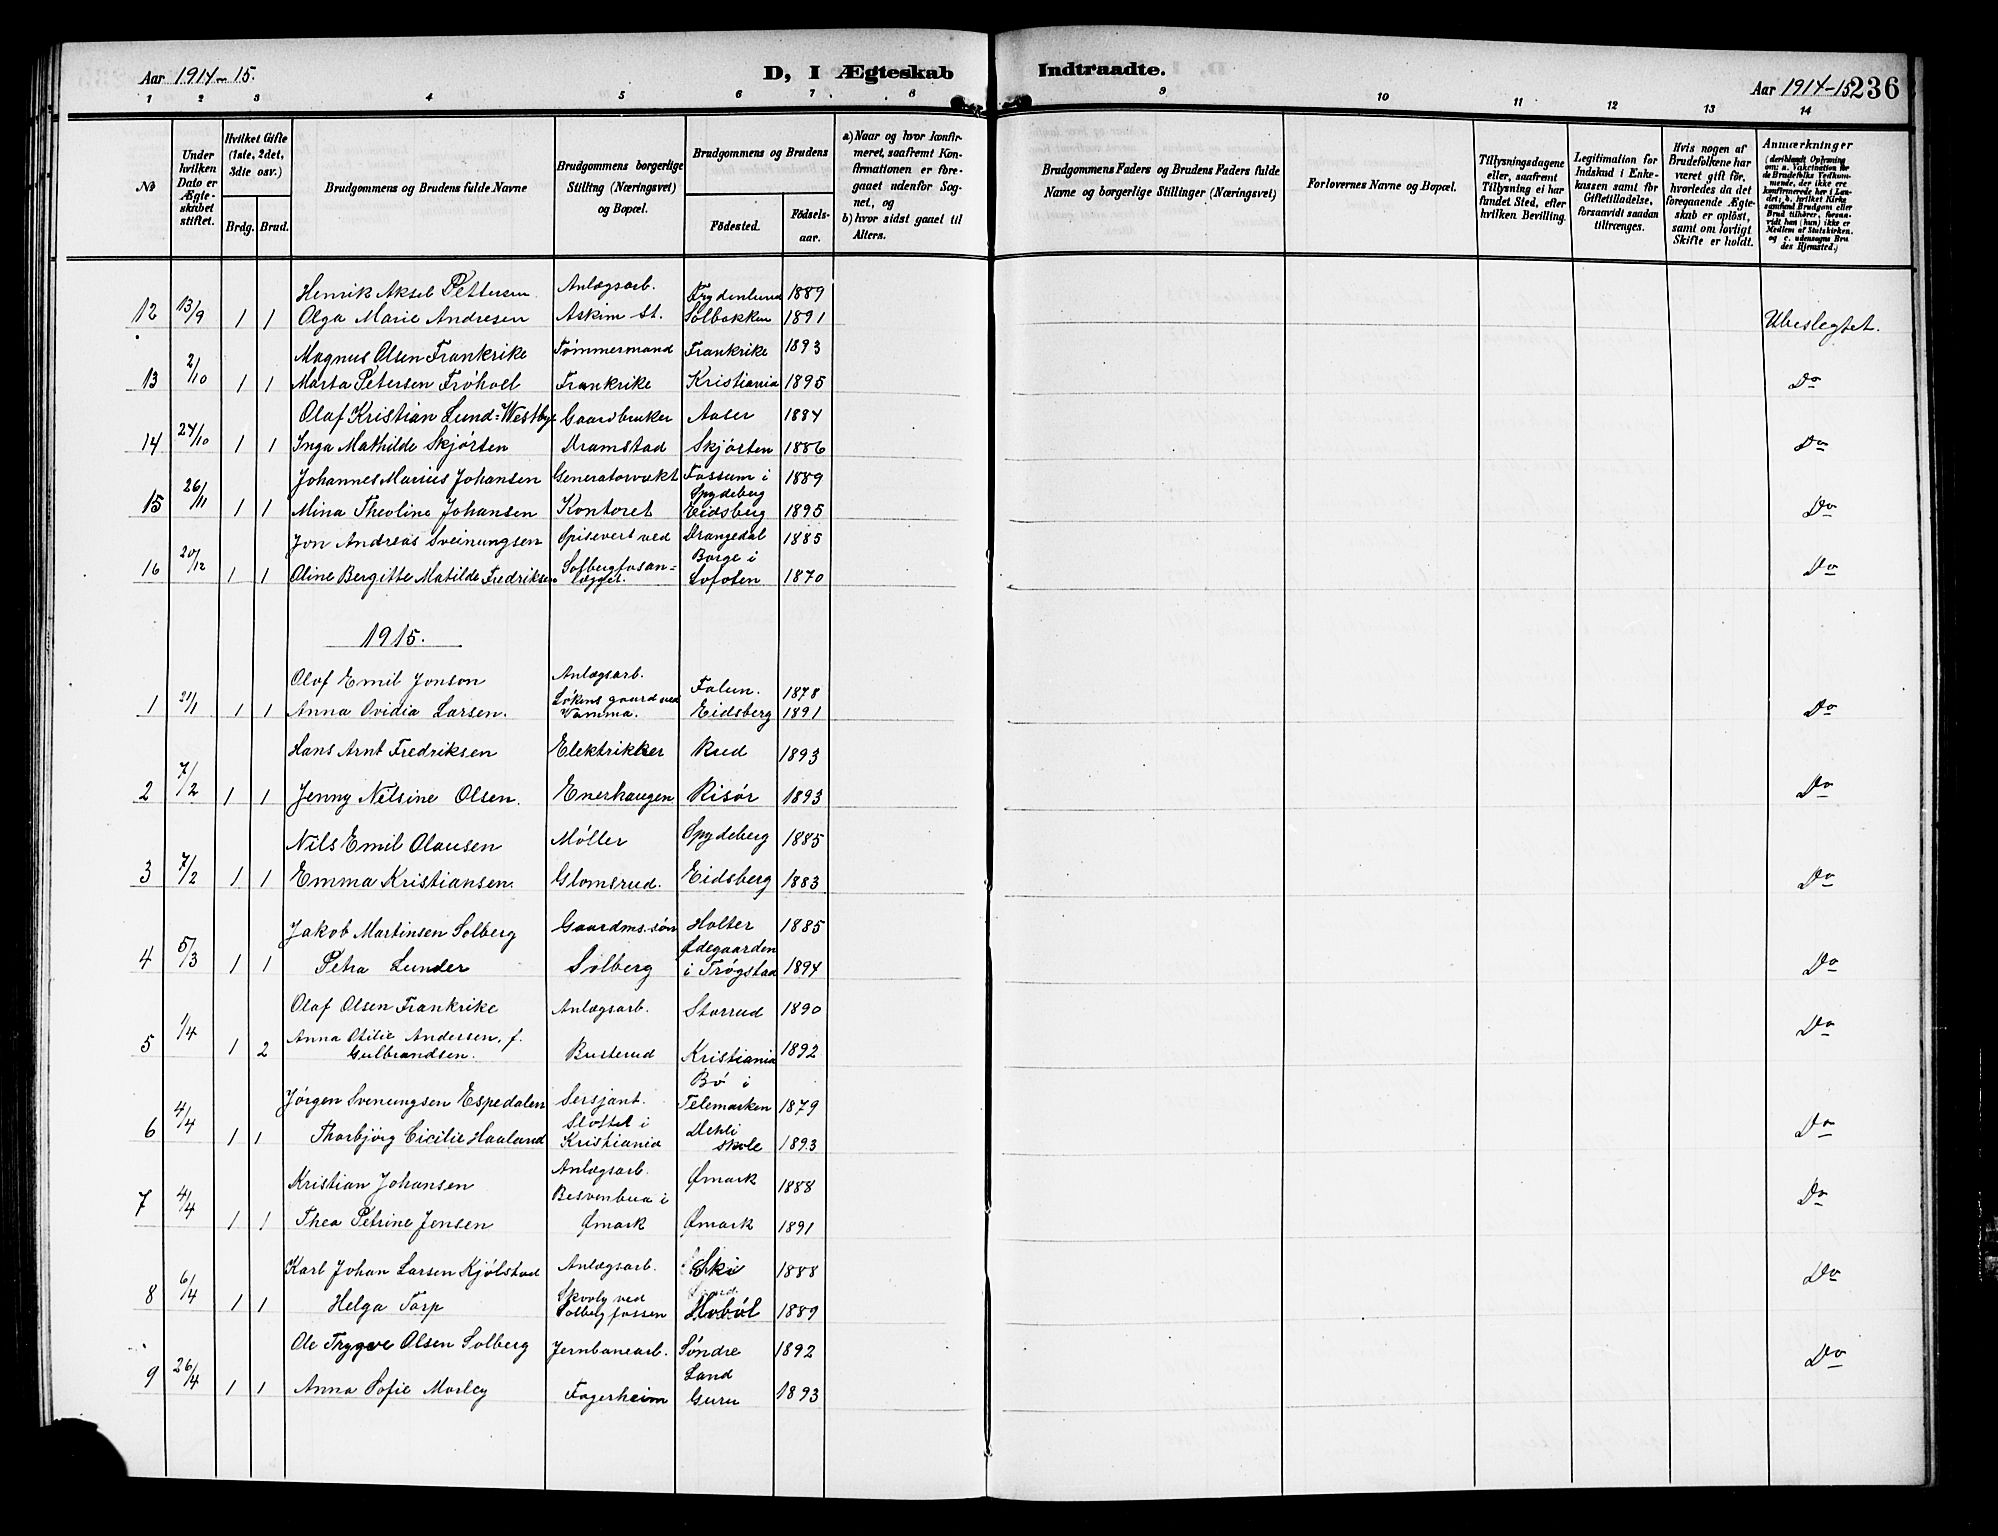 Aar 1914-15. D, I Ægteskab Indtraadte. Aar 1914-15 236
1 2 3 4 5 6 7 8 9 10 11 12 13 14
No
Under hvilken Dato er Ægteskabet stiftet.
Hvilket Gifte (1ste, 2det, 3die osv.)
Brdg. Brud.
Brudgommens og Brudens fulde Navne
Brudgommens borgerlige Stilling (Næringsvei) og Bopæl.
Brudgommens og Brudens
Födested. Födsels-aar.
a) Naar og hvor konfirmeret, saafremt Konfirmationen er foregaaet udenfor Sognet, og
b) hvor sidst gaaet til Alters.
Brudgommens Faders og Brudens Faders fulde Navne og borgerlige Stillinger (Næringsvei)
Forlovernes Navne og Bopæl.
Tillysningsdagene eller, saafremt Tillysning ei har fundet Sted, efter hvilken Bevilling.
Legitimation for Indskud i Enkekassen samt for Giftetilladelse, forsaavidt saadan tiltrænges.
Hvis nogen af Brudefolkene har været gift för, hvorledes da det foregaaende Ægteskab er oplöst, samt om lovligt Skifte er holdt.
Anmærkninger
(deriblandt Oplysning om: a. Vakcination for de Brudefolks Vedkommende, der ikke ere konfirmerede her i Landet; b. hvilket Kirkesamfund Brudgom eller Brud tilhører, forsaavidt han (hun) ikke er Medlem af Statskirken. og c. udensogns Brudes Hjemsted.)
Henrik Aksel Pettersen Anlægsarb. Frydenlund 1889
12 13/9 1 1 Olga Marie Andresen Askim st. Solbakken 1891 Ubeslegtet.
Magnus Olsen Frankrike Tømmermand Frankrike 1893
13 2/10 1 1 Marta Petersen Frøhoel Frankrike Kristiania 1895 Do
Olaf Kristian Lund=Westbye Gaardbruker Aaser 1884
14 24/10 1 1 Inga Mathilde Skjørten Dramstad Skjørten 1886 Do
Johannes Marius Johansen Generatorvakt Fossum i Spydeberg 1889
15 26/11 1 1 Mina Theoline Johansen Kontoret Eidsberg 1895 Do
Jon Andreas Sveinungsen Spisevert ved Drangedal 1885
16 20/12 1 1 Oline Bergitte Matilde Fredriksen Solbergfosanlægget. Borge i Lofoten 1870 Do
1915.
Olof Emil Jonson Anlægsarb. Falun. 1878
1 21/1 1 1 Anna Ovidia Larsen. Løkens gaard ved Vamma. Eidsberg 1891 Do
Hans Arnt Fredriksen Elektrikker Rud 1893
2 7/2 1 1 Jenny Nilsine Olsen. Enerhaugen Risør 1893 Do
Nils Emil Olausen Møller Spydeberg 1885
3 7/2 1 1 Emma Kristiansen. Glomsrud. Eidsberg 1883 Do
Jakob Martinsen Solberg Gaardms.søn Holter 1885
4 5/3 1 1 Petra Lunder Solberg Ødegaarden i Trøgstad 1894 Do
Olaf Olsen Frankrike Anlægsarb. Storrud 1890
5 1/4 1 2 Anna Otilie Andersen, f. Gulbrandsen. Busterud Kristiania 1892 Do
Jørgen Svenungsen Espedalen Sersjant. Bø i Telemarken 1879
6 4/4 1 1 Thorbjørg Cicilie Haaland Slottet i Kristiania Dehli skole 1893 Do
Kristian Johansen Anlægsarb. Ømark 1888
7 4/4 1 1 Thea Petrine Jensen Besvenbua i Ømark Ømark 1891 Do
Karl Johan Larsen Kjølstad Anlægsarb. Ski 1888
8 6/4 1 1 Helga Torp Skovly ved Solbergfossen Hobøl 1889 Do
Ole Trygve Olsen Solberg Jernbanearb. Søndre Land 1892
9 26/4 1 1 Anna Sofie Morley Fagerheim Guru 1893 Do